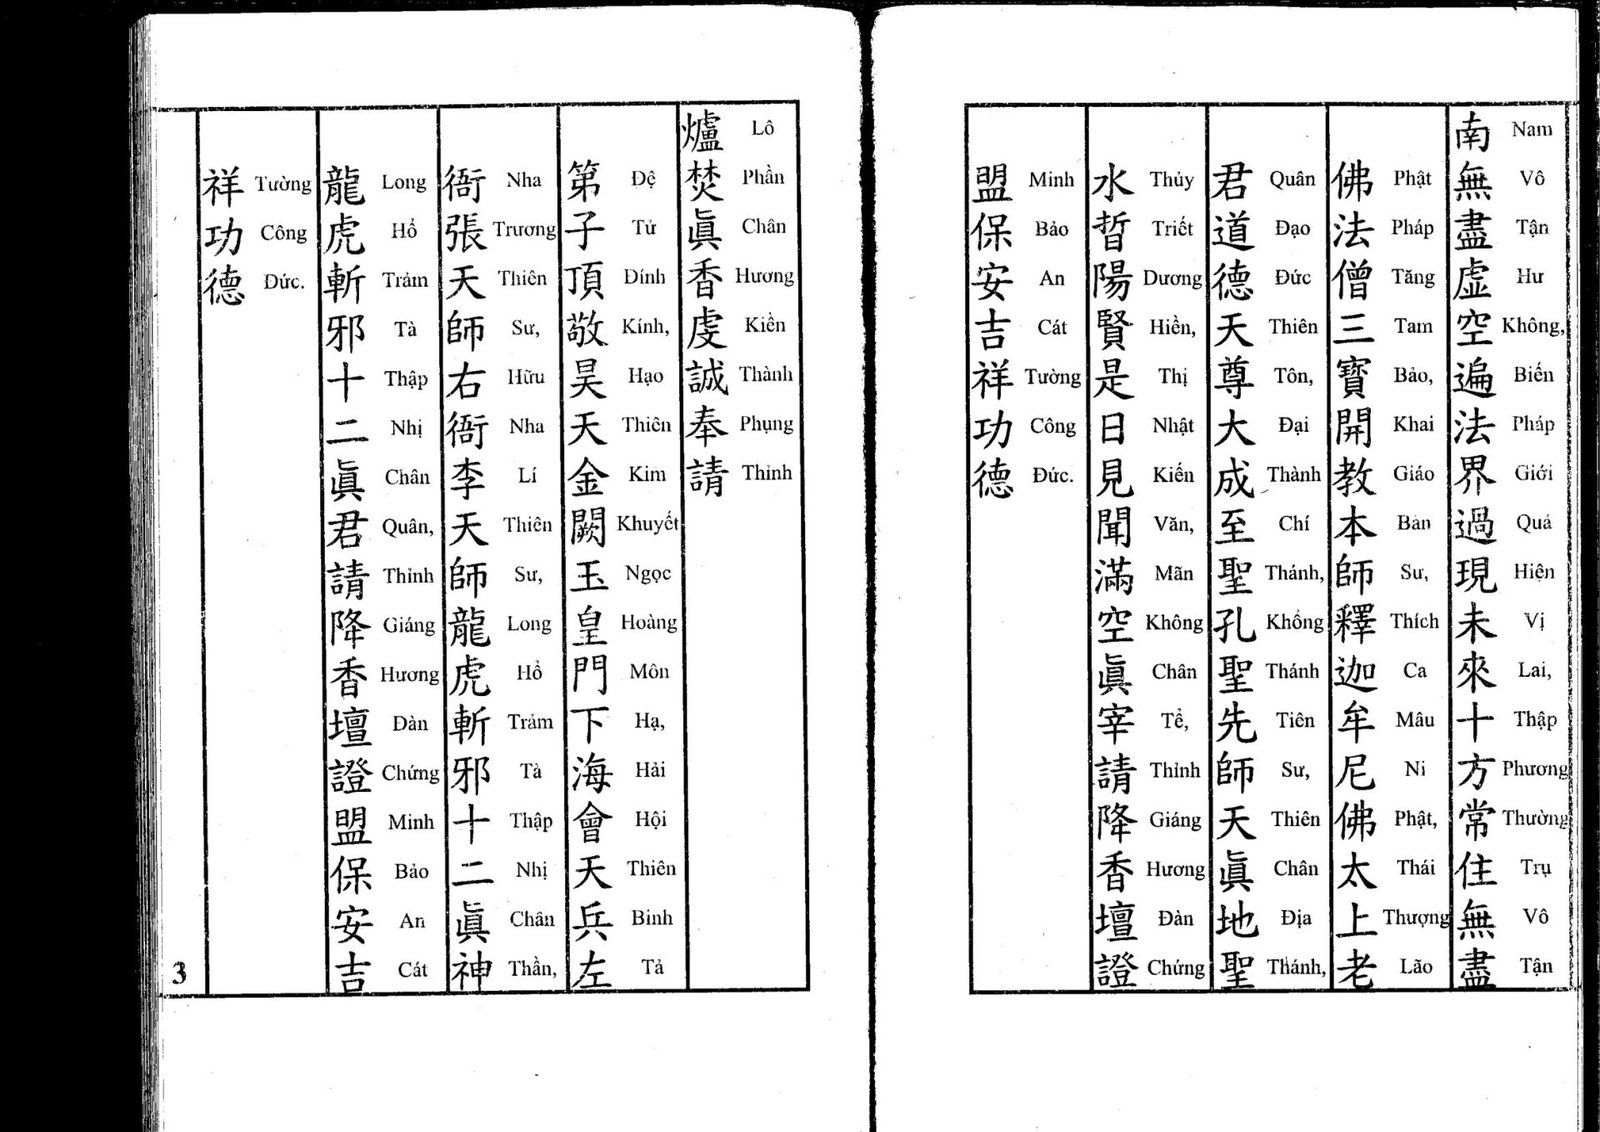 南無盡虛空遍法界過現未來十方常住無盡
Nam Vô Tận Hư Không, Biến Pháp Giới Quá Hiện Vị Lai, Thập Phương Thường Trụ Vô Tận
佛法僧三寶開教本師釋迦牟尼佛太上老
Phật Pháp Tăng Tam Bảo, Khai Giáo Bản Sư, Thích Ca Mâu Ni Phật, Thái Thượng Lão
君道德天尊大成至聖孔聖先師天眞地聖
Quân Đạo Đức Thiên Tôn, Đại Thành Chí Thánh, Khổng Thánh Tiên Sư, Thiên Chân Địa Thánh,
水哲陽賢是日見聞滿空眞宰請降香壇證
Thủy Triết Dương Hiền, Thị Nhật Kiến Văn, Mãn Không Chân Tể, Thỉnh Giáng Hương Đàn Chứng
盟保安吉祥功德
Minh Bảo An Cát Tường Công Đức.
爐焚眞香虔誠奉請
Lô Phần Chân Hương Kiền Thành Phụng Thỉnh
第子頂敬昊天金闕玉皇門下海會天兵左
Đệ Tử Đính Kính, Hạo Thiên Kim Khuyết Ngọc Hoàng Môn Hạ, Hải Hội Thiên Binh Tả
衙張天師右衙李天師龍虎斬邪十二眞神
Nha Trương Thiên Sư, Hữu Nha Lí Thiên Sư, Long Hổ Trảm Tà Thập Nhị Chân Thần,
龍虎斬邪十二眞君請降香壇證盟保安吉
Long Hổ Trảm Tà Thập Nhị Chân Quân, Thỉnh Giáng Hương Đàn Chứng Minh Bảo An Cát
祥功德
Tường Công Đức.
3